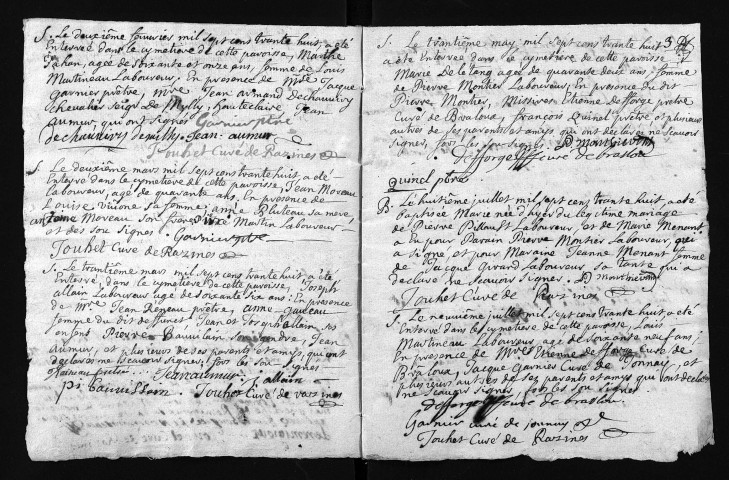 S. Le deuxième fevrier mil sept cens trante huit, a été
Enterrée dans le cymetiere de cette paroisse, Marthe
agée de soixante et onze ans, femme de Louis
Martineau Laboureur. En presence de Mrs Jacque
Garnier prêtre, Mre Jean Armand De chauvery
chevalier seigr de Milly, hauteclaire, Jean
aumur, qui ont signés Garnier ptre
dechauvery demilly Jean aumur
Touhet Curé de Razines
S. Le deuxième mars mil sept cens trante huit, a été
Enterré dans le cymetiere de cette paroisse, Jean Moreau
Laboureur, agé de quarante ans, En presence de
Louise sa femme, anne Bluteau sa mere,
antoine Moreau son frere, Martin Laboureur
et des sou signés Garnier ptre
Touhet Curé de Razines
S. Le trantième mars mil sept cens trante huit, a été
Enterré, dans le cymetiere de cette paroisse, Joseph
allain Laboureur agé de soixante six ans; En presence
de Mre Jean Reneau prêtre, anne gadeau
femme du dit defunct, Jean et Joseph allain ses
enfens, Pierre Bauvilain son gendre, Jean
aumur, et plusieurs de ses parents et amys, qui ont
declarés ne sçauoir signer, fors les sou signés
Jean aumur J. allain
pi bauvillain Touhet Curé de razines
3
S. Le trantième may mil sept cens trante huit
a été Enterrée dans le cymetiere de cette paroisse
Marie De letang agée de quarante deux ans, femme
de Pierre Montier Laboureur, En presence du dit
Pierre Montier, Missires Etienne Desforge prêtre
Curé de Braloux, françois Quincl prêtre et plusieurs
autres de ses parents et amys qui ont declarés ne sçauoir
signer, fors les sou signés
Desforges Curé de braslou
Quincl ptre
B. Le huitième juillet mil sept cens trante huit, a été
Baptisée Marie née d'hyer du legitime mariage
de Pierre Pitault Laboureur, et de Marie Menant
a Eu pour Parain Pierre Montier Laboureur, qui
a signé, et pour Maraine Jeanne Menant femme
de Jacque Girard Laboureur sa tante qui a
declaré ne sçauoir signer.
Touhet Curé de Razines
S. Le neuvième juillet mil sept cens trante huit a été
Enterré dans le cymetiere de cette paroisse, Louis
Martineau Laboureur, agé de soixante neuf ans,
En presence de Mres Etienne de forge Curé de
Braloux, Jacque Garnier Curé de Jonnay, et
plusieurs autres de ses parents et amys qui ont declarés
ne sçauoir signer, fors les sou signés
Desforges Curé de braslou
Garnier curé de jonnay
Touhet Curé de Razines